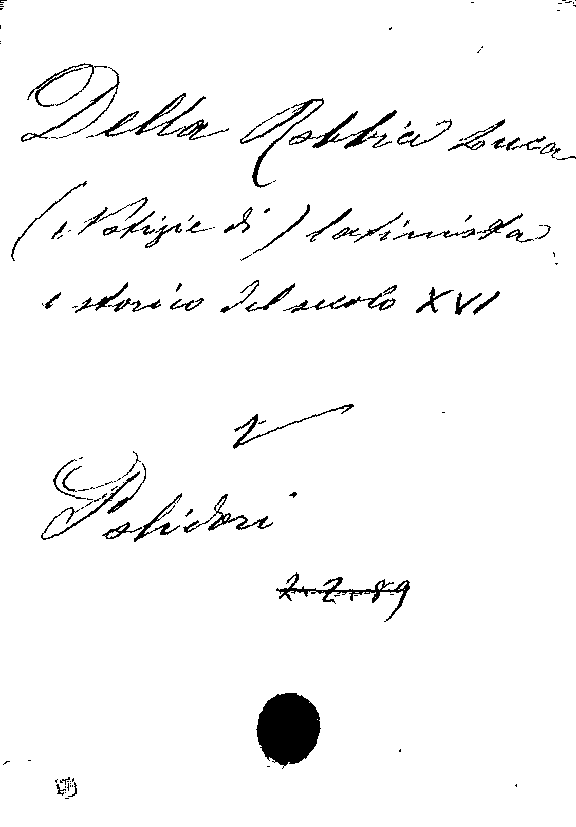 Della Robbia Luca
(Notizie di) latinista
e storico del secolo XVI
V
Polidori
2.2.89